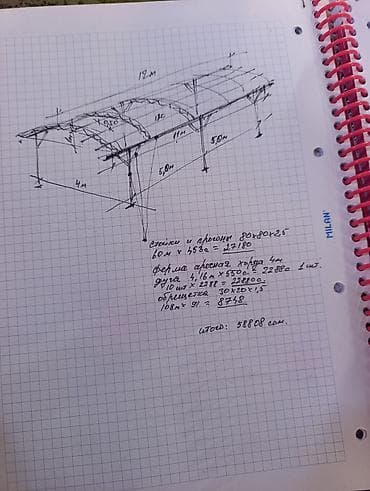 12 м
11м
5,0м
5,0м
4 м
стойки и прогоны 80х80х2.5
60м х 453с = 27180
ферма арочная хорда 4м
дуга 4,16м х 550с = 2288с 1 шт.
10 шт х 2288 = 22880с
обрешетка 30х20х1,5
108м х 81 = 8748
итого: 58808 сом.
MILAN